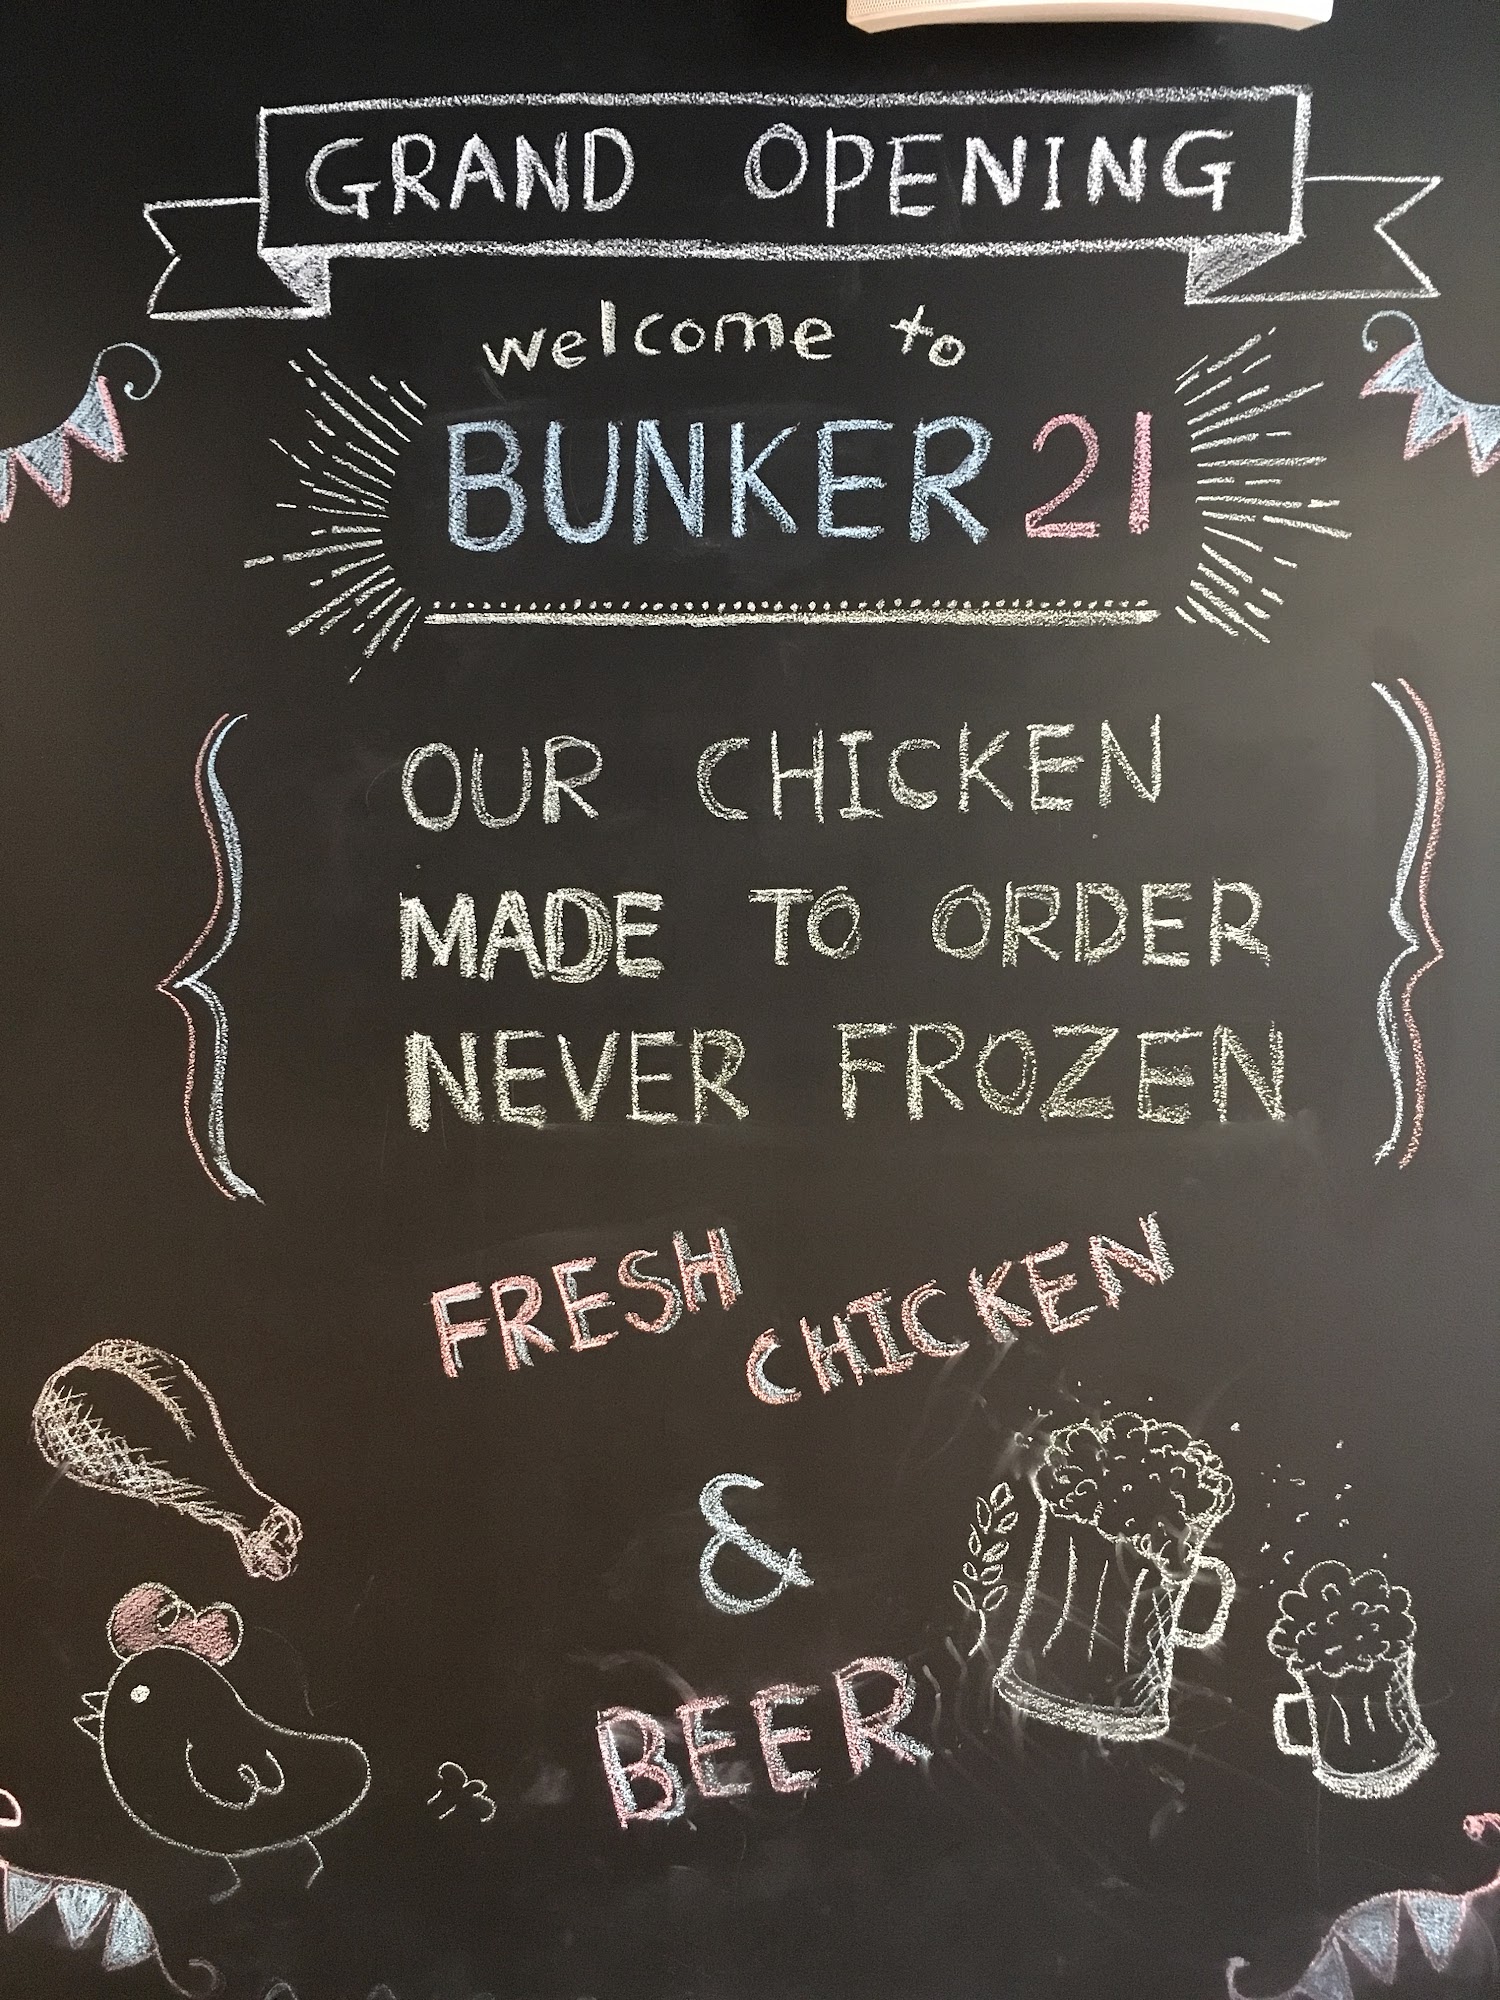 GRAND OPENING
welcome to
BUNKER 21
OUR CHICKEN
MADE TO ORDER
NEVER FROZEN
FRESH CHICKEN
&
BEER